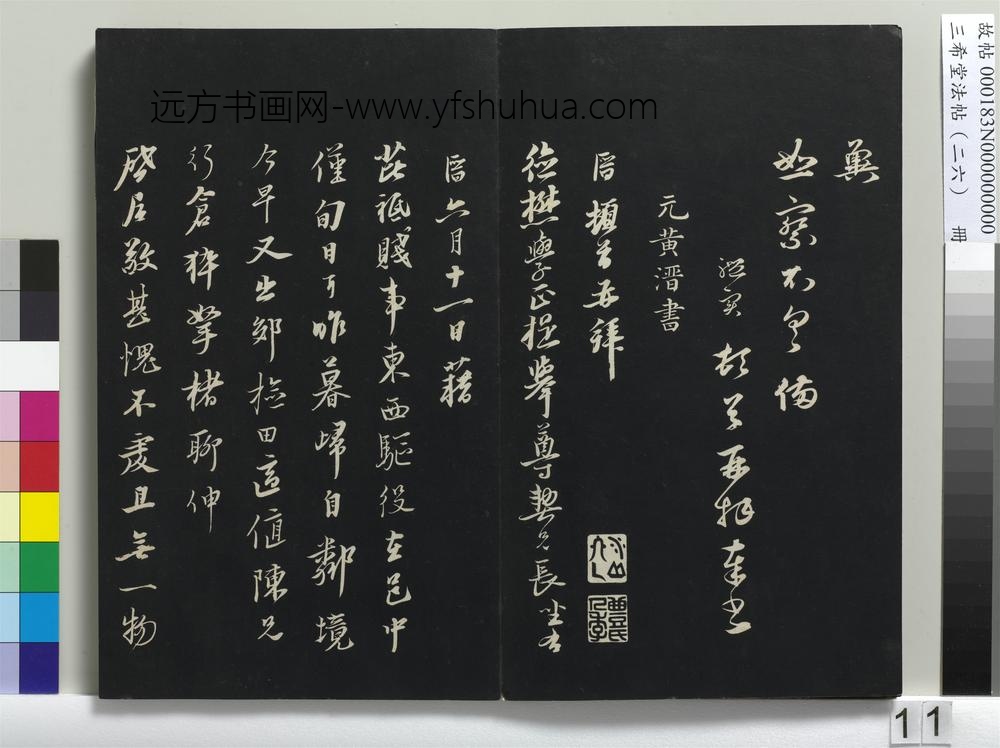 照察不宣備
頓首再拜奉書
元黃溍書
溍頓首再拜
德懋學正提舉尊契兄長坐右
溍六月十一日藉
庇祗賤事東西驅役在邑中
僅旬日耳昨暮歸自鄰境
今早又出郊檢田適值陳兄
行倉猝拏楮聊伸
啓居敬甚愧不虔且無一物
远方书画网-www.yfshuhua.com
故帖 000183N000000000
三希堂法帖（二六） 冊
11